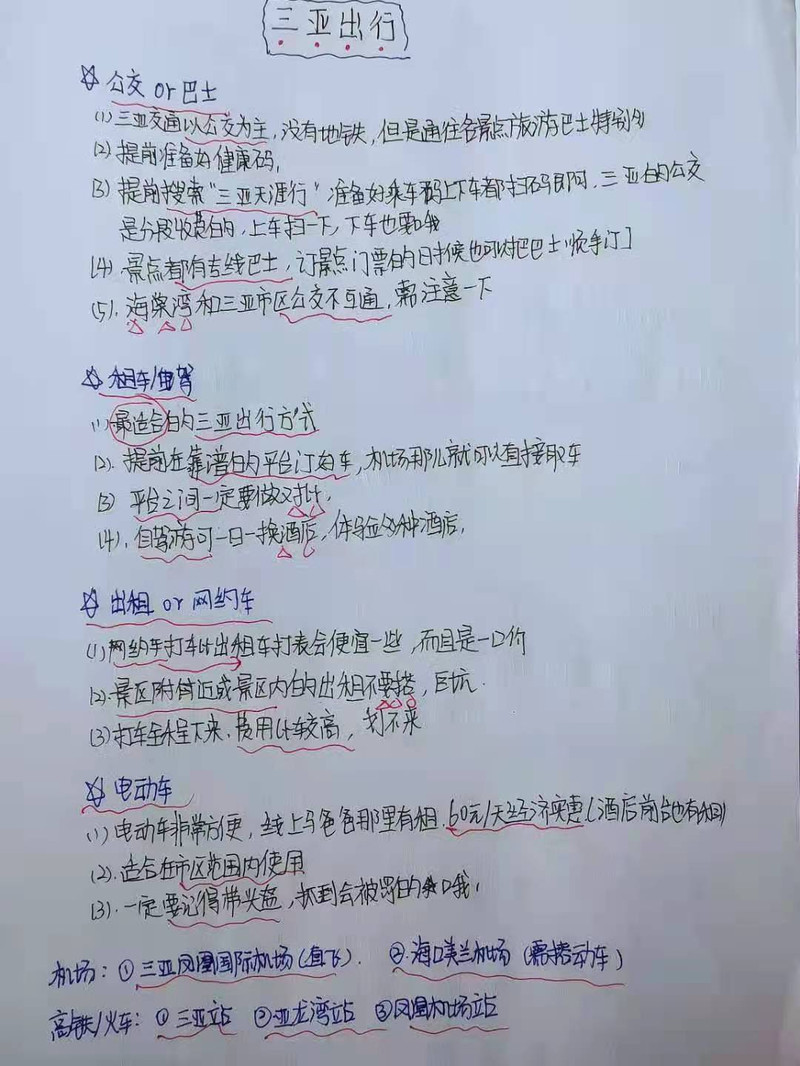 三亚出行
☆ 公交 or 巴士
(1) 三亚交通以公交为主，没有地铁，但是通往各景点旅游巴士特别多
(2) 提前准备好健康码，
(3) 提前搜索“三亚天涯行”准备好乘车码上下车都扫码即可，三亚的公交
是分段收费的，上车扫一下，下车也要哦
(4)．景点都有专线巴士，订景点门票的时候也可以把巴士顺手订了
(5)．海棠湾和三亚市区公交不互通，需注意一下
☆ 租车/自驾
(1) 最适合的三亚出行方式
(2)．提前在靠谱的平台订好车，机场那儿就可以直接取车
(3) 平台之间一定要做对比，
(4)．自驾游可一日一换酒店，体验各种酒店，
☆ 出租 or 网约车
(1) 网约车打车比出租车打表会便宜一些，而且是一口价
(2)．景区附近或景区内的出租不要搭，巨坑．
(3) 打车全程下来，费用比较高，划不来
☆ 电动车
(1) 电动车非常方便，线上马爸爸那里有租，60元/天经济实惠(酒店前台也有租)
(2)．适合在市区范围内使用
(3)．一定要记得带头盔，抓到会被罚的哦，
机场：① 三亚凤凰国际机场(直飞)． ② 海口美兰机场（需搭动车）
高铁/火车：① 三亚站 ② 亚龙湾站 ③ 凤凰机场站